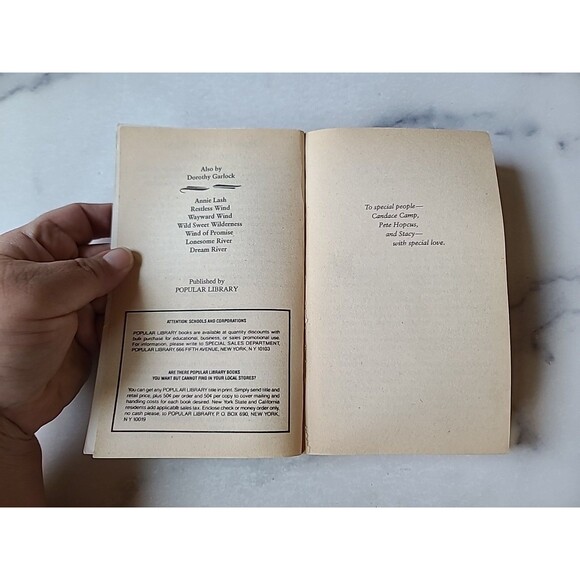 Also by
Dorothy Garlock
Annie Lash
Restless Wind
Wayward Wind
Wild Sweet Wilderness
Wind of Promise
Lonesome River
Dream River
Published by
POPULAR LIBRARY
ATTENTION: SCHOOLS AND CORPORATIONS
POPULAR LIBRARY books are available at quantity discounts with
bulk purchase for educational, business, or sales promotional use.
For information, please write to SPECIAL SALES DEPARTMENT,
POPULAR LIBRARY 666 FIFTH AVENUE, NEW YORK, N Y 10103
ARE THERE POPULAR LIBRARY BOOKS
YOU WANT BUT CANNOT FIND IN YOUR LOCAL STORES?
You can get any POPULAR LIBRARY title in print. Simply send title and
retail price, plus 50¢ per order and 50¢ per copy to cover mailing and
handling costs for each book desired. New York State and California
residents add applicable sales tax. Enclose check or money order only,
no cash please, to POPULAR LIBRARY, P. O. BOX 690, NEW YORK,
N Y 10019
To special people—
Candace Camp,
Pete Hopcus,
and Stacy—
with special love.